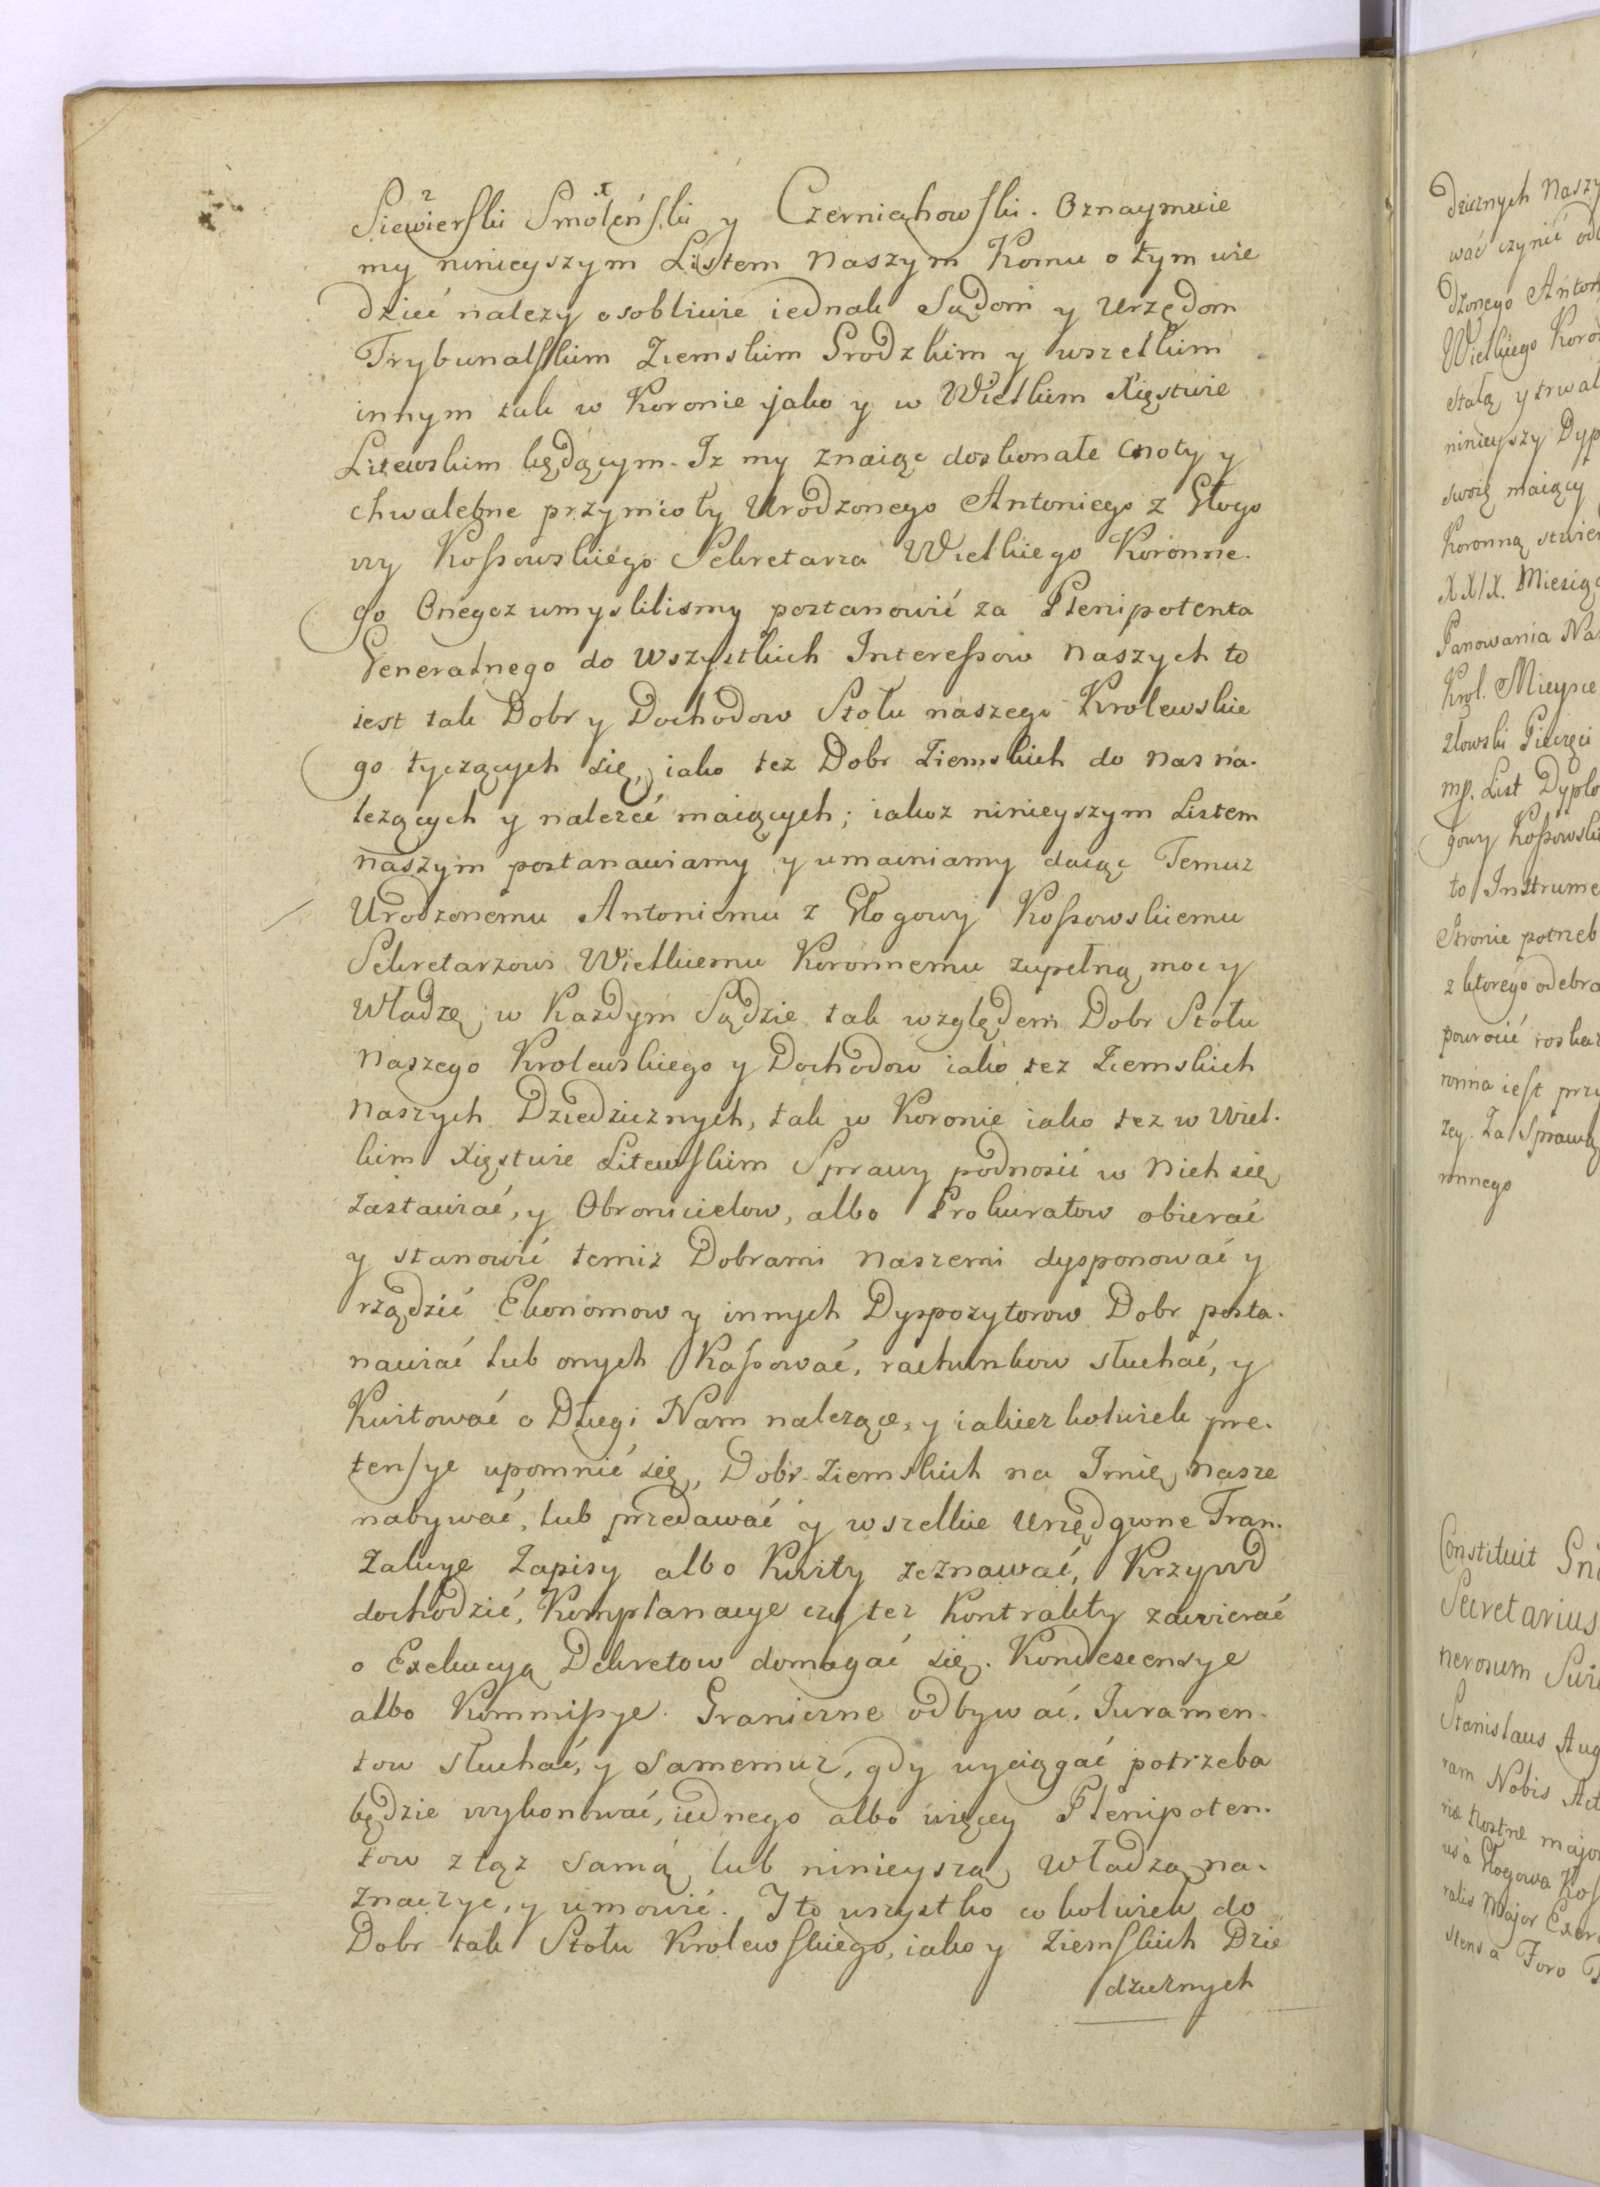 Siewierski Smoleński y Czerniechowski. Oznaymuie
my ninieyszym Listem Naszym Komu o tym wie
dzieć nalezy osobliwie iednak Sądom y Urzędom
Trybunalskim Ziemskim Grodzkim y wszelkim
innym tak w Koronie jako y w Wielkim Xięstwie
Litewskim będącym. Iz my znaiąc doskonałe Cnoty y
chwalebne przymioty Urodzonego Antoniego z Głogo
wy Koßowskiego Sekretarza Wielkiego Koronne.
go Onegoz umyslilismy postanowić za Plenipotenta
Generalnego do Wszystkich Intereßow Naszych to
iest tak Dobr y Dochodow Stołu naszego Krolewskie
go tyczących się, iako tez Dobr Ziemskich do nas na.
lezących y nalezeć maiących; iakoz ninieyszym Listem
naszym postanawiamy y umacniamy daiąc Temuz
Urodzonemu Antoniemu z Głogowy Koßowskiemu
Sekretarzowi Wielkiemu Koronnemu zupełną moc y
Władzę, w Kazdym Sądzie tak względem Dobr Stołu
Naszego Krolewskiego y Dochodow iako tez Ziemskich
Naszych Dziedzicznych, tak w Koronie iako tez w Wiel.
kim Xięstwie Litewskim Sprawy podnosić w Nich się
Zastawiać, y Obronicielow, albo Prokuratow obierać
y stanowić temiz Dobrami Naszemi dysponować y
rządzić Ekonomow y innych Dyspozytorow Dobr posta.
nawiać lub onych Kaßować, rachunkow słuchać, y
Kwitować o Długi Nam nalezące, y iakiez kolwiek pre.
tensye upomnić się, Dobr Ziemskich na Imię nasze
nabywać, lub przedawać y wszelkie Urzędowne Tran.
zakcye Zapisy albo Kwity zeznawać, Krzywd
dochodzić, Komplanacye czy tez Kontrakty zawierać
o Exekucyą Dekretow domagać się. Kondescensye
albo Kommißye Graniczne odbywać, Juramen.
tow słuchać, y samemuz, gdy wyciągać potrzeba
będzie wykonować, iednego albo więcey Plenipoten.
tow z tąz samą lub ninieyszą Władzą na.
znaczyc, y umowić. I to wszystko co kolwiek do
Dobr tak Stołu Krolewskiego, iako y Ziemskich Dzie
dzicznych
dzicznych Naszy
wać czynić
dzonego Anton
Wielkiego Koro
stałą y trwał
ninieyszy Dyp
swoię maiący
Koronną
XXIX. Miesiąc
Panowania Na
Krol. Mieysce
Pieczęci
mp. List Dyplo
gowy Koßowsk
to Instrume
Stronie potrzeb
z ktorego odebra
powrocić
ronna iest przy
Za Sprawą
ronnego
Constituit
Secretarius
nerosum
Stanislaus Aug
ram Nobis Act
Nostræ major
us a Głogowa Koß
ralis Major Exer
stens a Foro